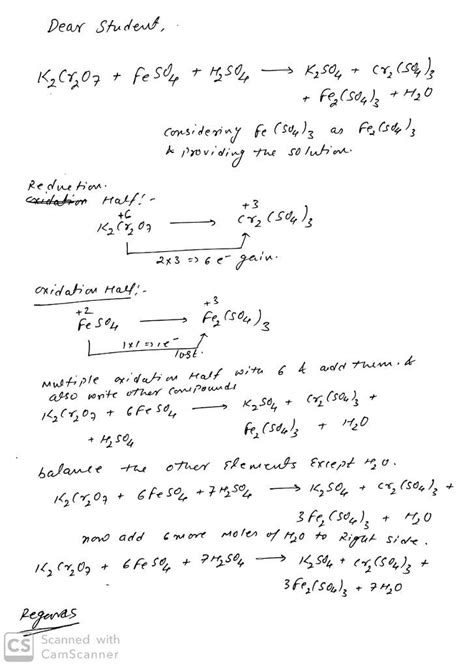 Dear Student,
K2Cr2O7 + FeSO4 + H2SO4 → K2SO4 + Cr2(SO4)3
+ Fe2(SO4)3 + H2O
considering Fe(SO4)3 as Fe2(SO4)3
& providing the solution.
Reduction
oxidation Half:-
+6 +3
K2Cr2O7 → Cr2(SO4)3
2x3 => 6 e- gain.
oxidation Half:-
+2 +3
FeSO4 → Fe2(SO4)3
1x1 => 1e-
lost.
Multiple oxidation Half with 6 & add them. &
also write other compounds
K2Cr2O7 + 6FeSO4 → K2SO4 + Cr2(SO4)3 +
+ H2SO4 Fe2(SO4)3 + H2O
balance the other elements Except H2O.
K2Cr2O7 + 6FeSO4 + 7H2SO4 → K2SO4 + Cr2(SO4)3 +
3Fe2(SO4)3 + H2O
now add 6 more moles of H2O to Right side.
K2Cr2O7 + 6FeSO4 + 7H2SO4 → K2SO4 + Cr2(SO4)3 +
3Fe2(SO4)3 + 7H2O
Regards
CS Scanned with
CamScanner